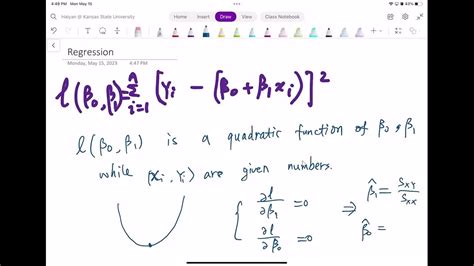 4:49 PM Mon May 15
Haiyan @ Kansas State University
Home Insert Draw View Class Notebook
Regression
Monday, May 15, 2023 4:47 PM
l(β₀,β₁)=Σⁿᵢ₌₁ [Yᵢ - (β₀+β₁xᵢ)]²
l(β₀,β₁) is a quadratic function of β₀ & β₁
while (xᵢ, Yᵢ) are given numbers.
{ ∂l/∂β₁ =0 ⇒ β̂₁ = Sxy/Sxx
∂l/∂β₀ =0 β̂₀ =